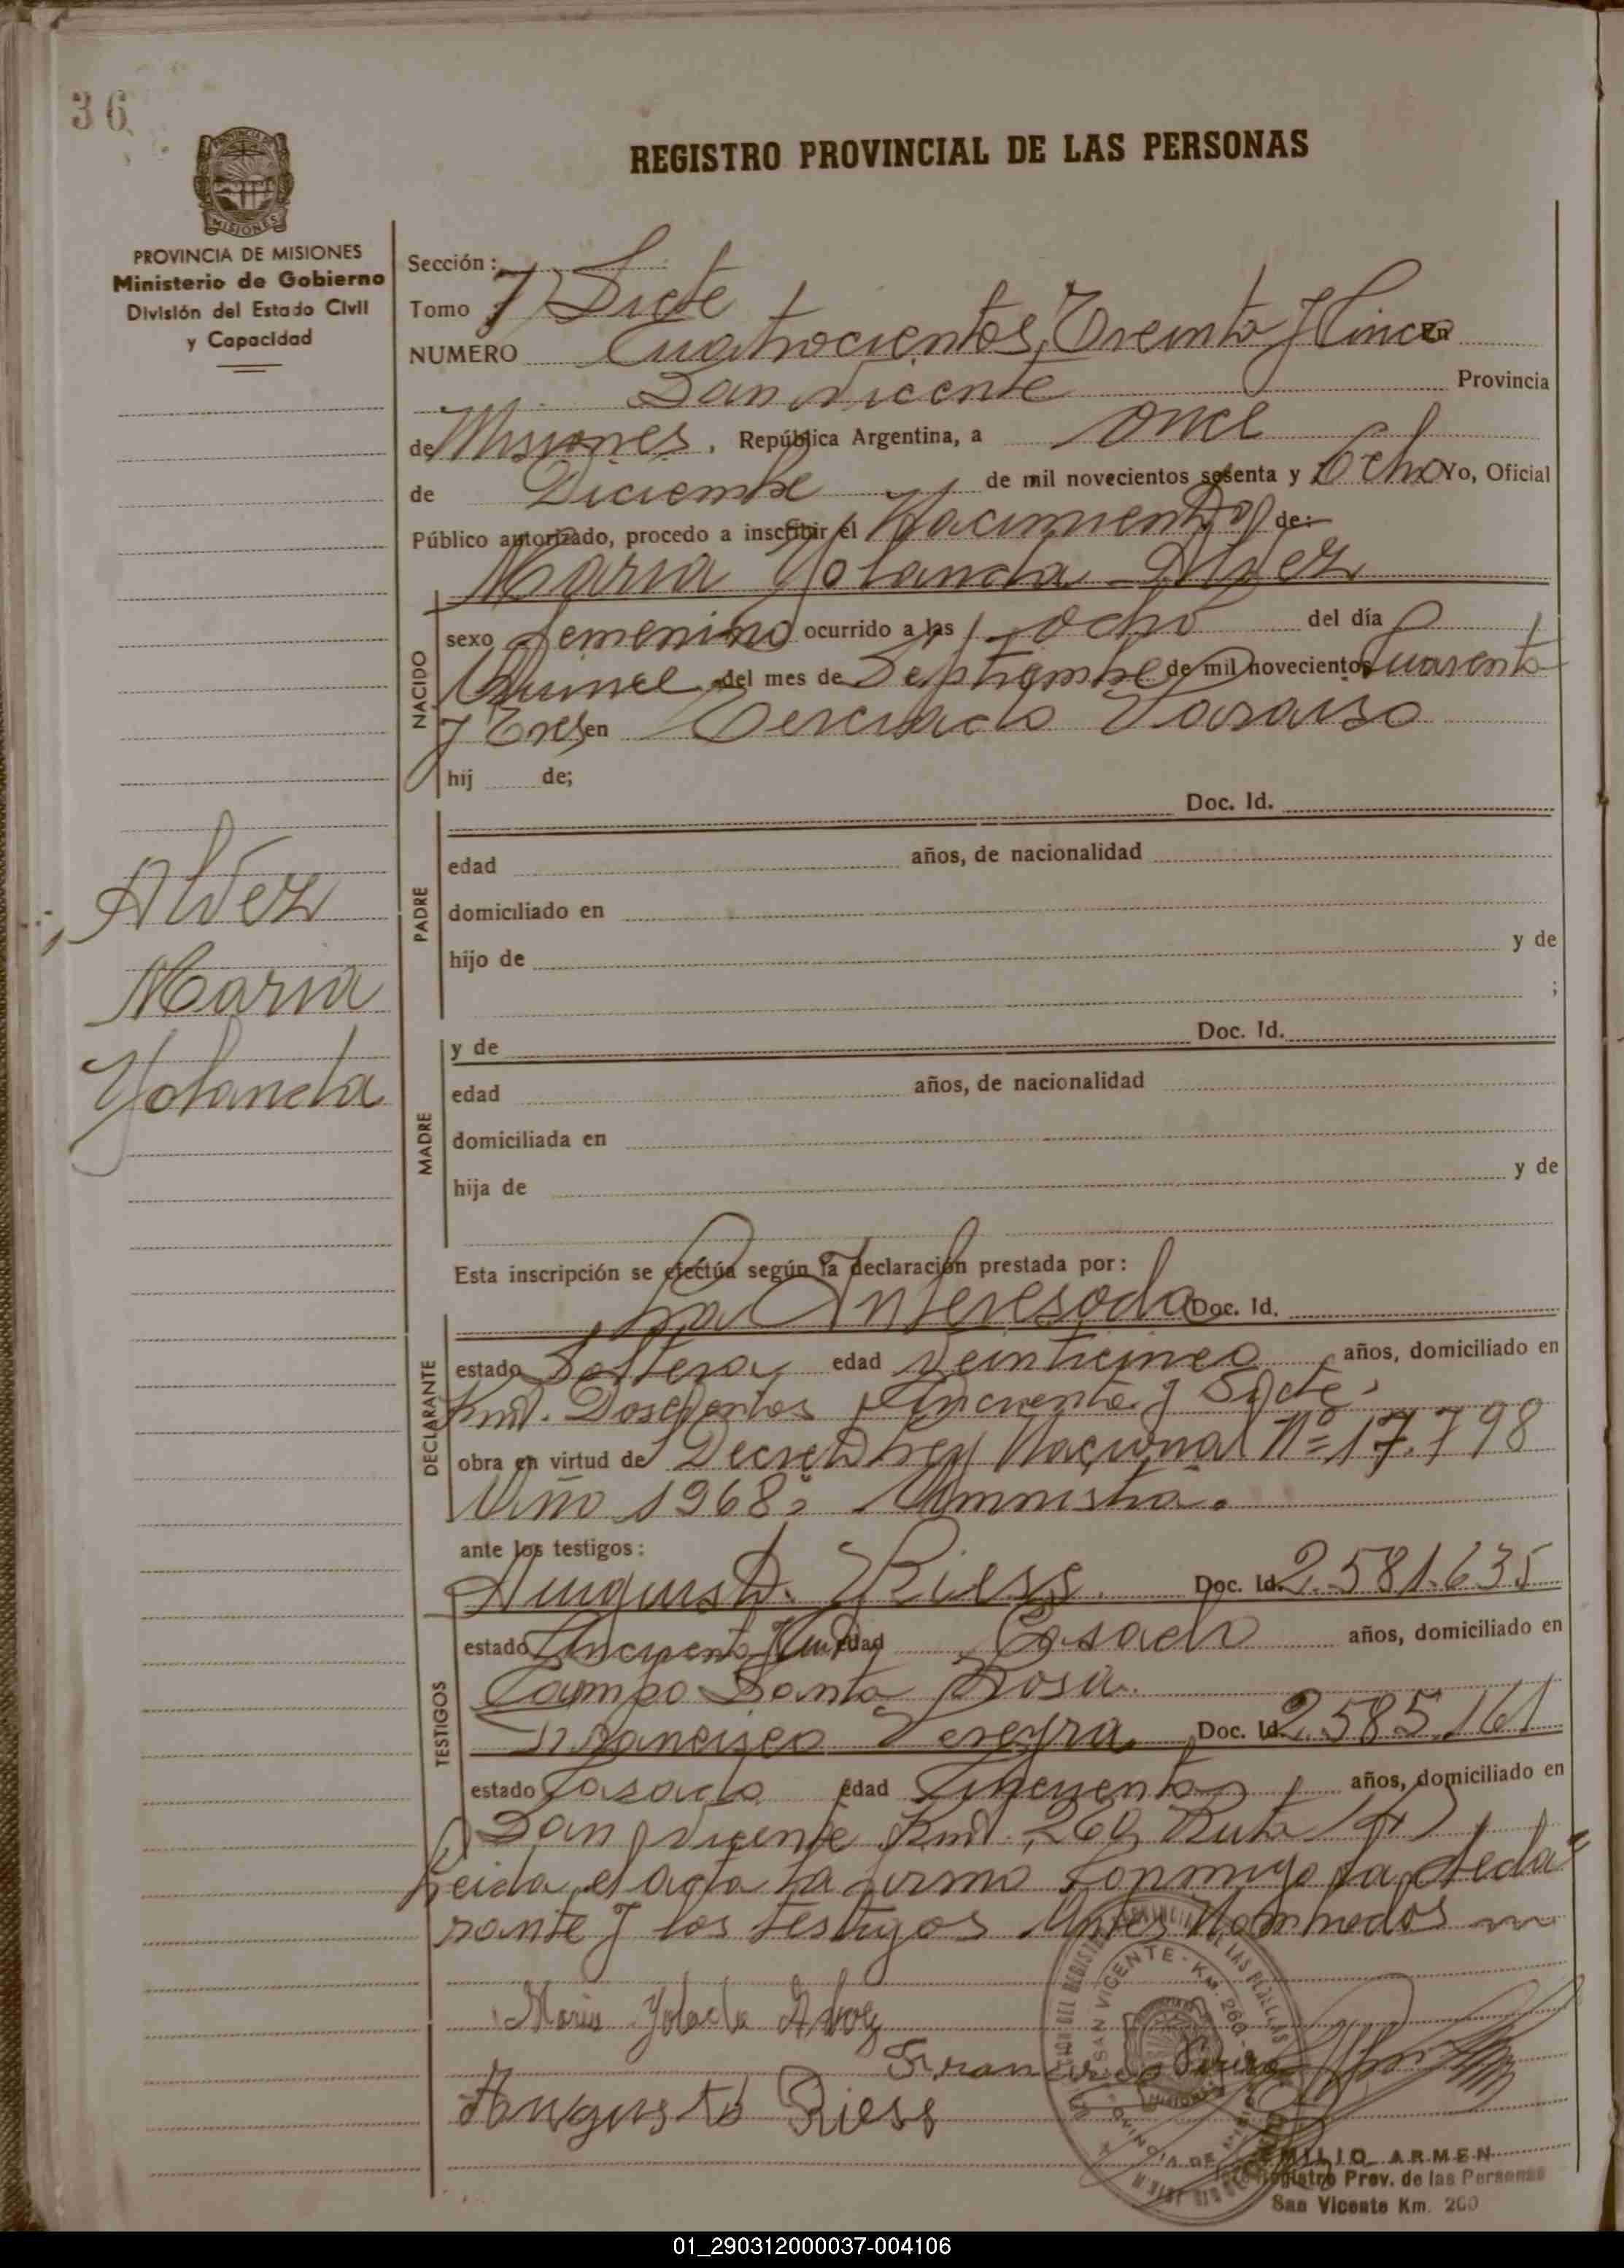 36
REGISTRO PROVINCIAL DE LAS PERSONAS
PROVINCIA DE MISIONES
Ministerio de Gobierno
División del Estado Civil
y Capacidad
Sección:
Tomo 7) Siete
NUMERO Cuatrocientos, Treinta y Cinco En
San Vicente Provincia
de Misiones, República Argentina, a once
de Diciembre de mil novecientos sesenta y Ocho Yo, Oficial
Público autorizado, procedo a inscribir el Nacimiento de:
Maria Yolanda Alvez
NACIDO
sexo femenino ocurrido a las ocho del día
Quince del mes de Septiembre de mil novecientos Cuarenta
y Tres en Cerciado Paraiso
hij de;
Doc. Id.
Alvez
Maria
Yolanda
PADRE
edad años, de nacionalidad
domiciliado en
hijo de y de
;
MADRE
y de Doc. Id.
edad años, de nacionalidad
domiciliada en
hija de y de
Esta inscripción se efectúa según la declaración prestada por:
La Interesada Doc. Id.
DECLARANTE
estado Soltera, edad Veinticinco años, domiciliado en
Km. Doscientos Cincuenta y Siete,
obra en virtud de Decreto Ley Nacional Nº 17.798
Año 1968, Amnistia.
ante los testigos:
Augusto. Riess. Doc. Id. 2.581.635
TESTIGOS
estado Cincuenta edad Casado años, domiciliado en
Campo Santa Rosa.
Francisco Pereyra Doc. Id. 2.585.161
estado Casado edad Cincuenta años, domiciliado en
San Vicente Km. 260, Ruta 14)
Leida el acta la firma Conmigo la decla=
rante y los testigos Antes Nombrados
Maria Yolada Alvez
Francisco Pereira
Augusto Riess
SAN VICENTE - KM. 260
EMILIO ARMEN
Registro Prov. de las Personas
San Vicente Km. 260
01_290312000037-004106